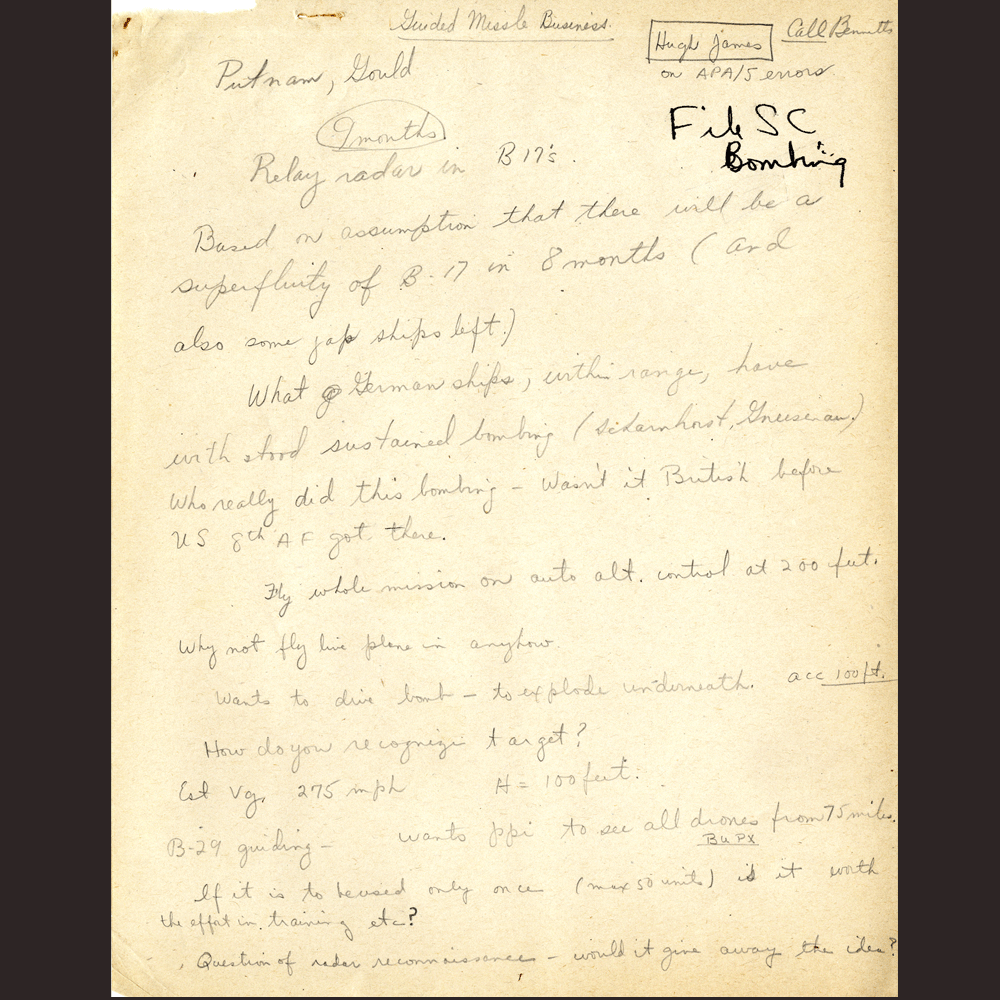 Guided Missle Business.
Hugh James
Call Bennetts
on APA/5 errors
Putnam, Gould
File SC
Bombing
9 months
Relay radar in B 17's.
Based on assumption that there will be a
superfluity of B-17 in 8 months (and
also some jap ships left.)
What German ships, within range, have
with stood sustained bombing (Scharnhorst, Gneisenau)
Who really did this bombing - Wasn't it British before
US 8th AF got there.
Fly whole mission on auto alt. control at 200 feet.
Why not fly live plane in anyhow.
Wants to dive bomb - to explode underneath. acc 100 ft.
How do you recognize target?
Est Vg. 275 mph H = 100 feet.
B-29 guiding - wants ppi to see all drones from 75 miles.
BuPX
If it is to be used only once (max 50 units) is it worth
the effort in training etc?
Question of radar reconnaissance - would it give away the idea?